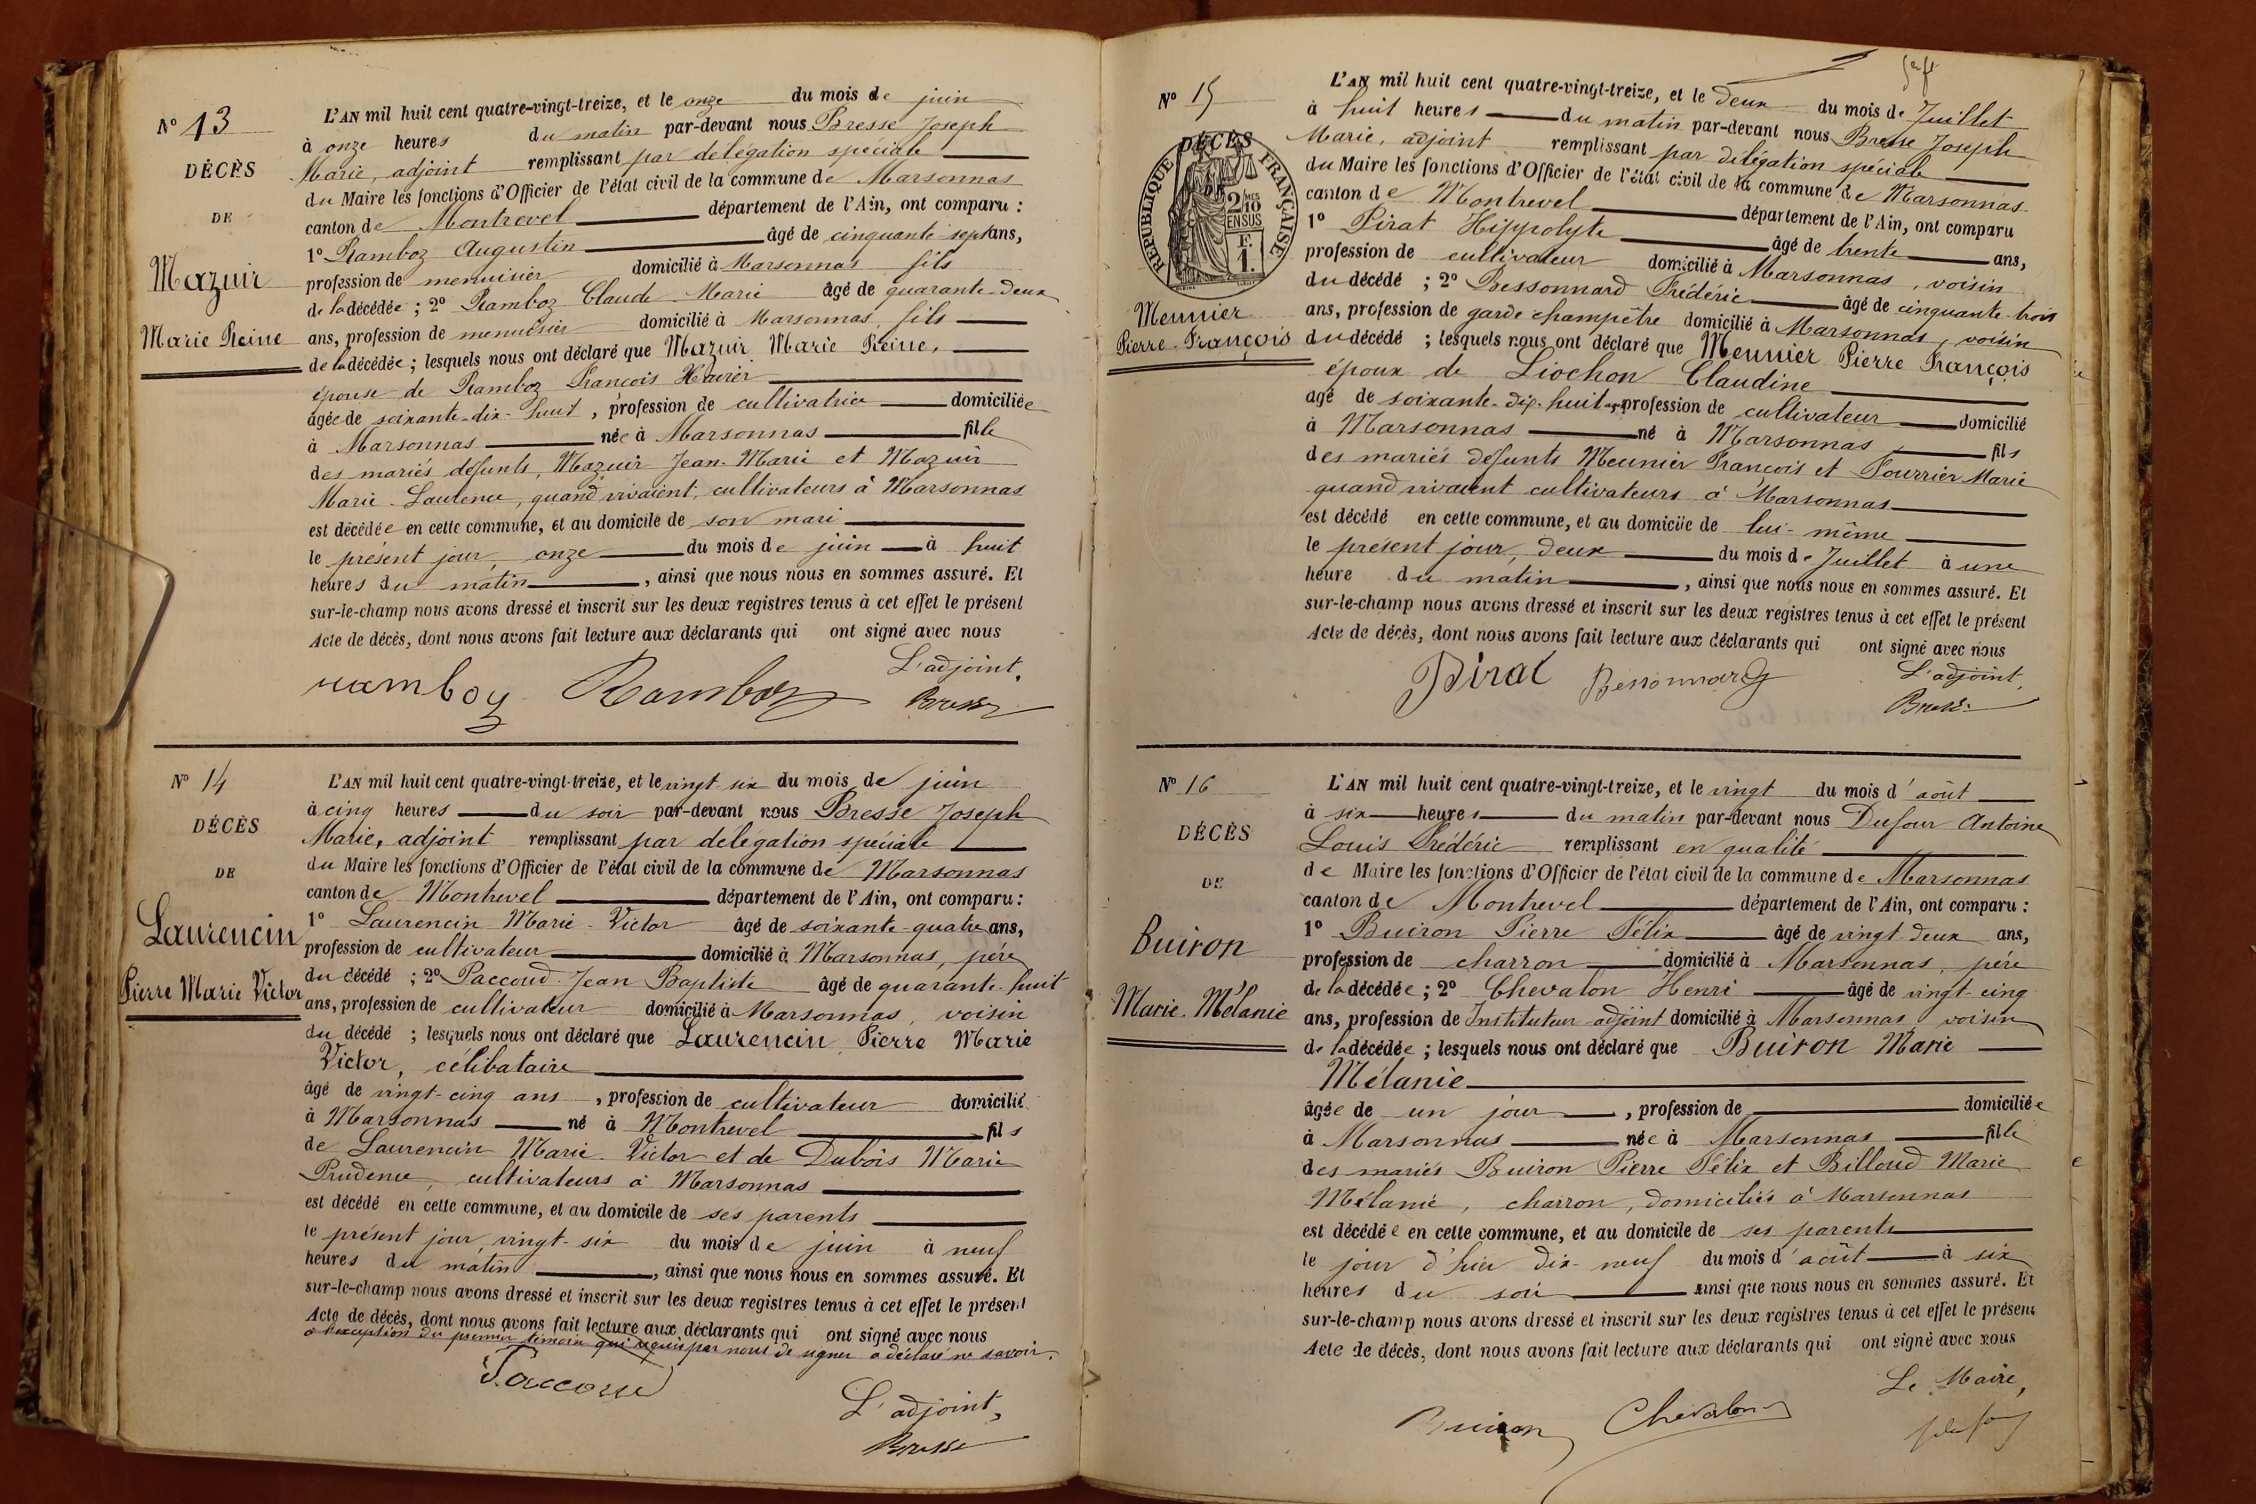 N° 13
DÉCÈS
DE
Mazuir
Marie Reine
L'AN mil huit cent quatre-vingt-treize, et le onze du mois de juin
à onze heures du matin par-devant nous Bresse Joseph
Marie, adjoint remplissant par délégation spéciale
du Maire les fonctions d'Officier de l'état civil de la commune de Marsonnas
canton de Montrevel département de l'Ain, ont comparu :
1° Ramboz Augustin âgé de cinquante-sept ans,
profession de menuisier domicilié à Marsonnas fils
de la décédée ; 2° Ramboz Claude Marie âgé de quarante-deux
ans, profession de menuisier domicilié à Marsonnas, fils
de la décédée ; lesquels nous ont déclaré que Mazuir Marie Reine,
épouse de Ramboz François Xavier
âgée de soixante-dix-huit, profession de cultivatrice domiciliée
à Marsonnas née à Marsonnas fille
des mariés défunts, Mazuir Jean-Marie et Mazuir
Marie-Laurence, quand vivaient, cultivateurs à Marsonnas
est décédée en cette commune, et au domicile de son mari
le présent jour, onze du mois de juin à huit
heures du matin, ainsi que nous nous en sommes assuré. Et
sur-le-champ nous avons dressé et inscrit sur les deux registres tenus à cet effet le présent
Acte de décès, dont nous avons fait lecture aux déclarants qui ont signé avec nous
L'adjoint,
ramboz Ramboz Bresse
N° 14
DÉCÈS
DE
Laurencin
Pierre Marie Victor
L'AN mil huit cent quatre-vingt-treize, et le vingt-six du mois de juin
à cinq heures du soir par-devant nous Bresse Joseph
Marie, adjoint remplissant par délégation spéciale
du Maire les fonctions d'Officier de l'état civil de la commune de Marsonnas
canton de Montrevel département de l'Ain, ont comparu :
1° Laurencin Marie-Victor âgé de soixante-quatre ans,
profession de cultivateur domicilié à Marsonnas, père
du décédé ; 2° Paccoud Jean Baptiste âgé de quarante-huit
ans, profession de cultivateur domicilié à Marsonnas, voisin
du décédé ; lesquels nous ont déclaré que Laurencin Pierre Marie
Victor, célibataire
âgé de vingt-cinq ans, profession de cultivateur domicilié
à Marsonnas né à Montrevel fils
de Laurencin Marie-Victor et de Dubois Marie
Prudence, cultivateurs à Marsonnas
est décédé en cette commune, et au domicile de ses parents
le présent jour, vingt-six du mois de juin à neuf
heures du matin, ainsi que nous nous en sommes assuré. Et
sur-le-champ nous avons dressé et inscrit sur les deux registres tenus à cet effet le présent
Acte de décès, dont nous avons fait lecture aux déclarants qui ont signé avec nous
à l'exception du premier témoin qui requis par nous de signer a déclaré ne savoir.
Paccoud
L'adjoint,
Bresse
N° 15
DÉCÈS
DE
RÉPUBLIQUE FRANÇAISE
2/10 MES
EN SUS
F.
1.
Meunier
Pierre-François
L'AN mil huit cent quatre-vingt-treize, et le deux du mois de Juillet
à huit heures du matin par-devant nous Bresse Joseph
Marie, adjoint remplissant par délégation spéciale
du Maire les fonctions d'Officier de l'état civil de la commune de Marsonnas
canton de Montrevel département de l'Ain, ont comparu
1° Pirat Hippolyte âgé de trente ans,
profession de cultivateur domicilié à Marsonnas, voisin
du décédé ; 2° Bessonnard Frédéric âgé de cinquante-trois
ans, profession de garde champêtre domicilié à Marsonnas, voisin
du décédé ; lesquels nous ont déclaré que Meunier Pierre François
époux de Liochon Claudine
âgé de soixante-dix-huit ans, profession de cultivateur domicilié
à Marsonnas né à Marsonnas fils
des mariés défunts Meunier François et Fourrier Marie
quand vivaient cultivateurs à Marsonnas
est décédé en cette commune, et au domicile de lui-même
le présent jour, deux du mois de Juillet à une
heure du matin, ainsi que nous nous en sommes assuré. Et
sur-le-champ nous avons dressé et inscrit sur les deux registres tenus à cet effet le présent
Acte de décès, dont nous avons fait lecture aux déclarants qui ont signé avec nous
L'adjoint,
Pirat Bessonnard Bresse
N° 16
DÉCÈS
DE
Buiron
Marie-Mélanie
L'AN mil huit cent quatre-vingt-treize, et le vingt du mois d'août
à six heures du matin par-devant nous Dufour Antoine
Louis Frédéric remplissant en qualité
de Maire les fonctions d'Officier de l'état civil de la commune de Marsonnas
canton de Montrevel département de l'Ain, ont comparu :
1° Buiron Pierre Félix âgé de vingt-deux ans,
profession de charron domicilié à Marsonnas, père
de la décédée ; 2° Chevalon Henri âgé de vingt-cinq
ans, profession de Instituteur adjoint domicilié à Marsonnas voisin
de la décédée ; lesquels nous ont déclaré que Buiron Marie
Mélanie
âgée de un jour, profession de domiciliée
à Marsonnas née à Marsonnas fille
des mariés Buiron Pierre Félix et Billoud Marie
Mélanie, charron, domiciliés à Marsonnas
est décédée en cette commune, et au domicile de ses parents
le jour d'hier dix-neuf du mois d'août à six
heures du soir ainsi que nous nous en sommes assuré. Et
sur-le-champ nous avons dressé et inscrit sur les deux registres tenus à cet effet le présent
Acte de décès, dont nous avons fait lecture aux déclarants qui ont signé avec nous
Le Maire,
Buiron Chevalon